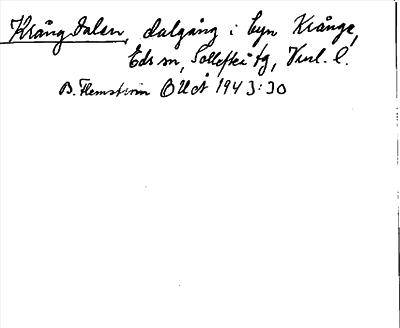 Krångdalen, dalgång i byn Krånge,
Eds sn, Sollefteå tg, Vnl. l.
B. Flemström OUoÅ 1943:30